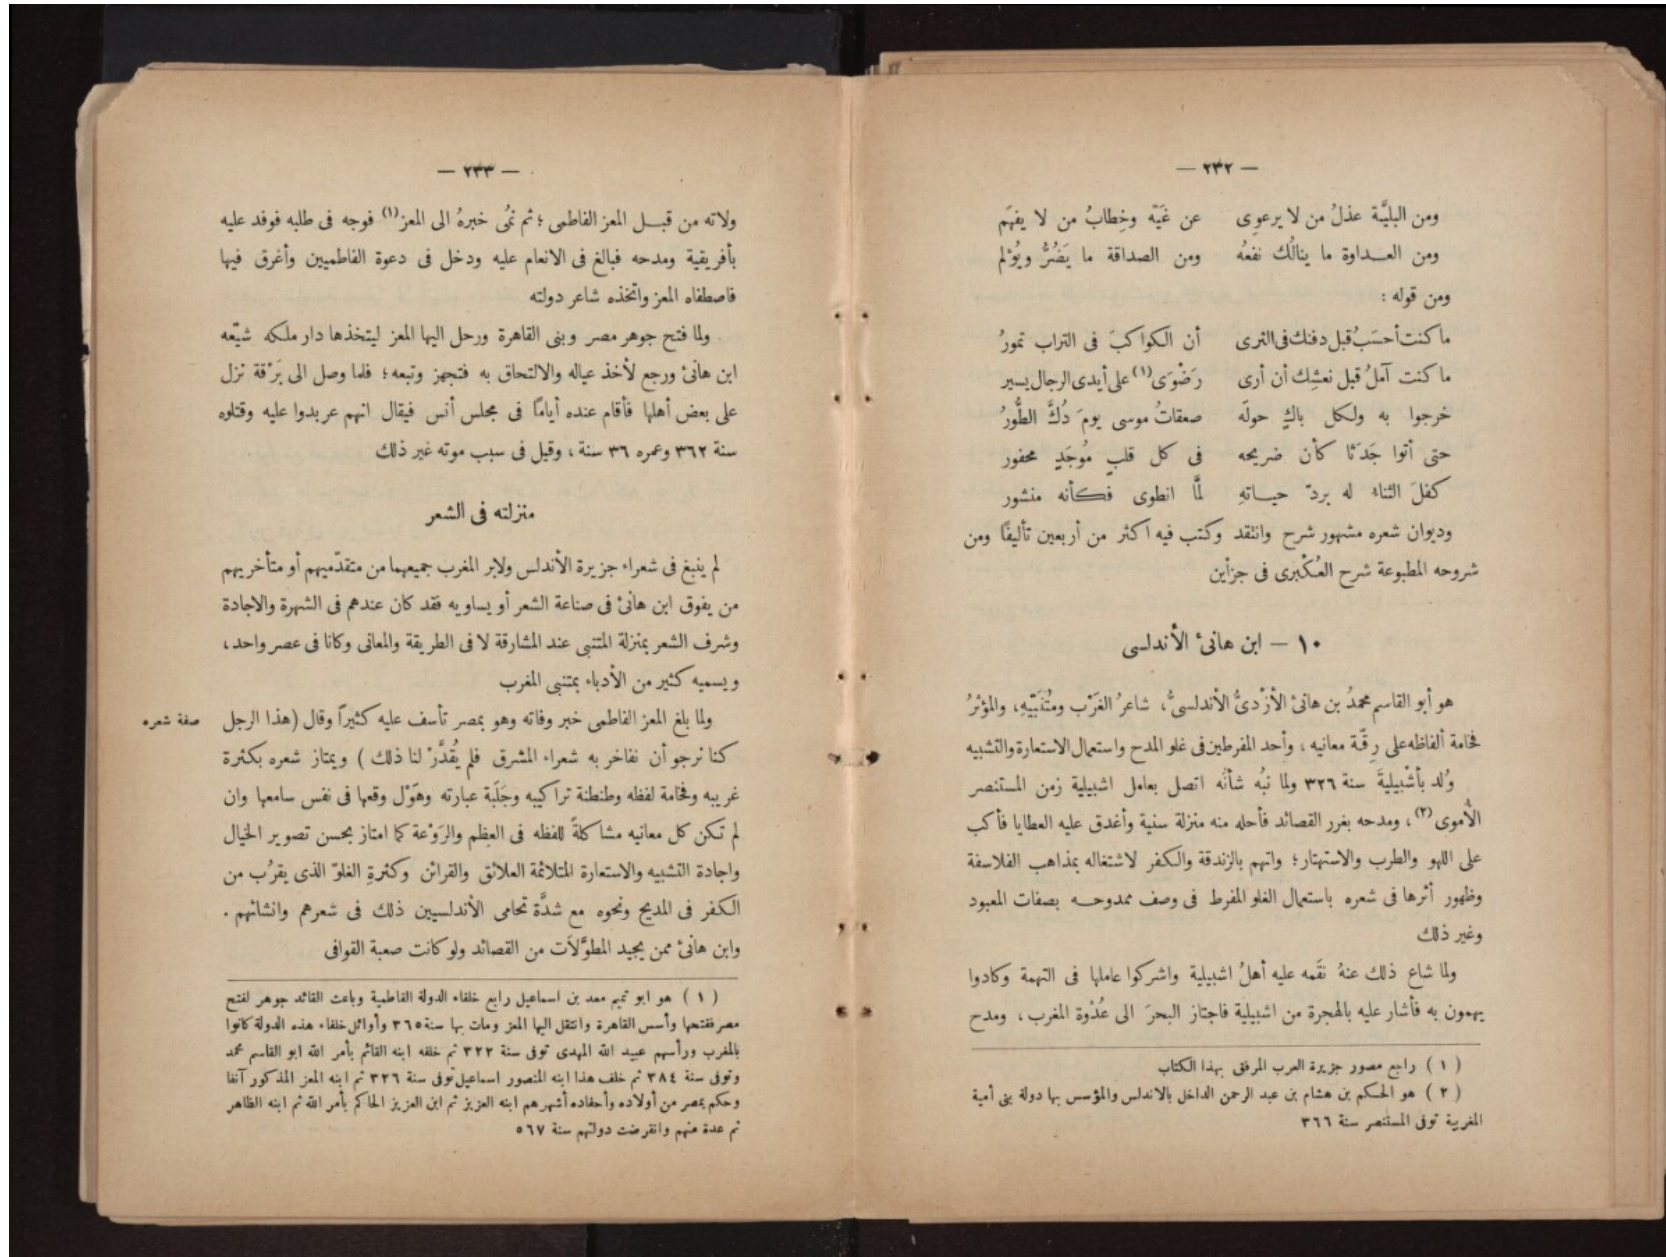 — ٢٣٢ —
ومن البليَّة عذلُ من لا يرعوِى عن غَيِّه وخِطابُ من لا يفهَم
ومن العـداوة ما ينالُك نفعُه ومن الصداقة ما يَضُرُّ ويُؤلم
ومن قوله :
ما كنت أحسَبُ قبل دفنك فى الثرى أن الكواكبَ فى التراب تمورُ
ما كنت آملُ قبل نعشِك أن أرى رَضْوَى (١) على أيدى الرجال يسير
خرجوا به ولكل باكٍ حولَه صعقاتُ موسى يومَ دُكَّ الطُّورُ
حتى أتوا جَدَثا كأن ضريحه فى كل قلبٍ مُوجَدٍ محفور
كفلَ الثناء له بردّ حيـاتهِ لمَّا انطوى فكأنه منشور
وديوان شعره مشهور شرح وانتقد وكتب فيه اكثر من أربعين تأليفًا ومن
شروحه المطبوعة شرح العُكْبرى فى جزأين
١٠ — ابن هانئ الأندلسى
هو أبو القاسم محمدُ بن هانئ الأزْدىُّ الأندلسىُّ، شاعرُ الغَرْب ومتُنَبِّيهِ، والمؤثرُ
فخامة ألفاظه على رِقّة معانيه ، وأحد المفرطين فى غلو المدح واستعمال الاستعارة والتشبيه
وُلد بأشْبيليةَ سنة ٣٢٦ ولما نبُه شأنُه اتصل بعامل اشبيلية زمن المستنصر
الأُموى (٢) ، ومدحه بغرر القصائد فأحله منه منزلة سنية وأغدق عليه العطايا فأكب
على اللهو والطرب والاستهتار؛ واتهم بالزندقة والكفر لاشتغاله بمذاهب الفلاسفة
وظهور أثرها فى شعره باستعمال الغلو المفرط فى وصف ممدوحـه بصفات المعبود
وغير ذلك
ولما شاع ذلك عنهُ نقَمه عليه أهلُ اشبيلية واشركوا عاملها فى التهمة وكادوا
يهمون به فأشار عليه بالهجرة من اشبيلية فاجتاز البحرَ الى عُدْوة المغرب ، ومدح
( ١ ) راجع مصور جزيرة العرب المرفق بهذا الكتاب
( ٢ ) هو الحكم بن هشام بن عبد الرحمن الداخل بالاندلس والمؤسس بها دولة بنى أمية
المغربية توفى المستنصر سنة ٣٦٦
— ٢٣٣ —
ولاته من قبـل المعز الفاطمى ؛ ثم نمُى خبرهُ الى المعز (١) فوجه فى طلبه فوفد عليه
بأفريقية ومدحه فبالغ فى الانعام عليه ودخل فى دعوة الفاطميين وأغرق فيها
فاصطفاه المعز واتخذه شاعر دولته
ولما فتح جوهر مصر وبنى القاهرة ورحل اليها المعز ليتخذها دار ملكه شيّعه
ابن هانئ ورجع لأخذ عياله والالتحاق به فتجهز وتبعه ؛ فلما وصل الى بَرْقة نزل
على بعض أهلها فأقام عنده أيامًا فى مجلس أنس فيقال انهم عربدوا عليه وقتلوه
سنة ٣٦٢ وعمره ٣٦ سنة ، وقيل فى سبب موته غير ذلك
منزلته فى الشعر
لم ينبغ فى شعراء جزيرة الأندلس ولابر المغرب جميعهما من متقدّميهم أو متأخريهم
من يفوق ابن هانئ فى صناعة الشعر أو يساويه فقد كان عندهم فى الشهرة والاجادة
وشرف الشعر بمنزلة المتنبى عند المشارقة لا فى الطريقة والمعانى وكانا فى عصر واحد ،
ويسميه كثير من الأدباء بمتنبى المغرب
صفة شعره
ولما بلغ المعز الفاطمى خبر وفاته وهو بمصر تأسف عليه كثيرًا وقال (هذا الرجل
كنا نرجو أن نفاخر به شعراء المشرق فلم يُقدَّرْ لنا ذلك ) ويمتاز شعره بكثرة
غريبه وفخامة لفظه وطنطنة تراكيبه وجَلَبة عبارته وهَوْل وقعها فى نفس سامعها وان
لم تكن كل معانيه مشاكلةً للفظه فى العظم والرَوْعة كما امتاز بحسن تصوير الخيال
واجادة التشبيه والاستعارة المتلائمة العلائق والقرائن وكثرةِ الغلوّ الذى يقرُب من
الكفر فى المديح ونحوه مع شدَّة تحامى الأندلسيين ذلك فى شعرهم وانشائهم .
وابن هانئ ممن يجيد المطوَّلاَت من القصائد ولو كانت صعبة القوافى
( ١ ) هو ابو تميم معد بن اسماعيل رابع خلفاء الدولة الفاطمية وباعث القائد جوهر لفتح
مصر ففتحها وأسس القاهرة وانتقل اليها المعز ومات بها سنة ٣٦٥ وأوائل خلفاء هذه الدولة كانوا
بالمغرب ورأسهم عبيد الله المهدى توفى سنة ٣٢٢ ثم خلفه ابنه القائم بأمر الله ابو القاسم محمد
وتوفى سنة ٣٨٤ ثم خلف هذا ابنه المنصور اسماعيل توفى سنة ٣٢٦ ثم ابنه المعز المذكور آنفا
وحكم بمصر من أولاده وأحفاده أشهرهم ابنه العزيز ثم ابن العزيز الحاكم بأمر الله ثم ابنه الظاهر
ثم عدة منهم وانقرضت دولتهم سنة ٥٦٧